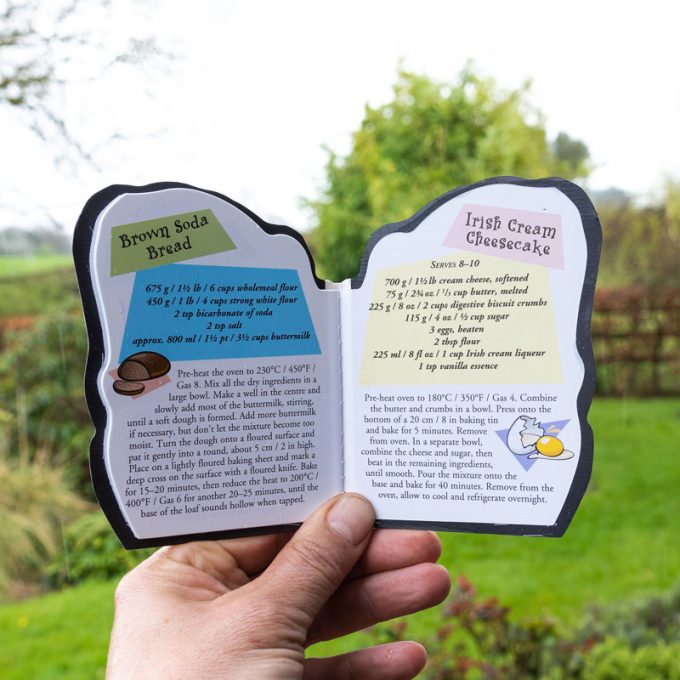 Brown Soda
Bread
675 g / 1½ lb / 6 cups wholemeal flour
450 g / 1 lb / 4 cups strong white flour
2 tsp bicarbonate of soda
2 tsp salt
approx. 800 ml / 1½ pt / 3½ cups buttermilk
Pre-heat the oven to 230°C / 450°F /
Gas 8. Mix all the dry ingredients in a
large bowl. Make a well in the centre and
slowly add most of the buttermilk, stirring,
until a soft dough is formed. Add more buttermilk
if necessary, but don't let the mixture become too
moist. Turn the dough onto a floured surface and
pat it gently into a round, about 5 cm / 2 in high.
Place on a lightly floured baking sheet and mark a
deep cross on the surface with a floured knife. Bake
for 15–20 minutes, then reduce the heat to 200°C /
400°F / Gas 6 for another 20–25 minutes, until the
base of the loaf sounds hollow when tapped.
Irish Cream
Cheesecake
Serves 8–10
700 g / 1½ lb cream cheese, softened
75 g / 2¾ oz / ⅓ cup butter, melted
225 g / 8 oz / 2 cups digestive biscuit crumbs
115 g / 4 oz / ½ cup sugar
3 eggs, beaten
2 tbsp flour
225 ml / 8 fl oz / 1 cup Irish cream liqueur
1 tsp vanilla essence
Pre-heat oven to 180°C / 350°F / Gas 4. Combine
the butter and crumbs in a bowl. Press onto the
bottom of a 20 cm / 8 in baking tin
and bake for 5 minutes. Remove
from oven. In a separate bowl,
combine the cheese and sugar, then
beat in the remaining ingredients,
until smooth. Pour the mixture onto the
base and bake for 40 minutes. Remove from the
oven, allow to cool and refrigerate overnight.